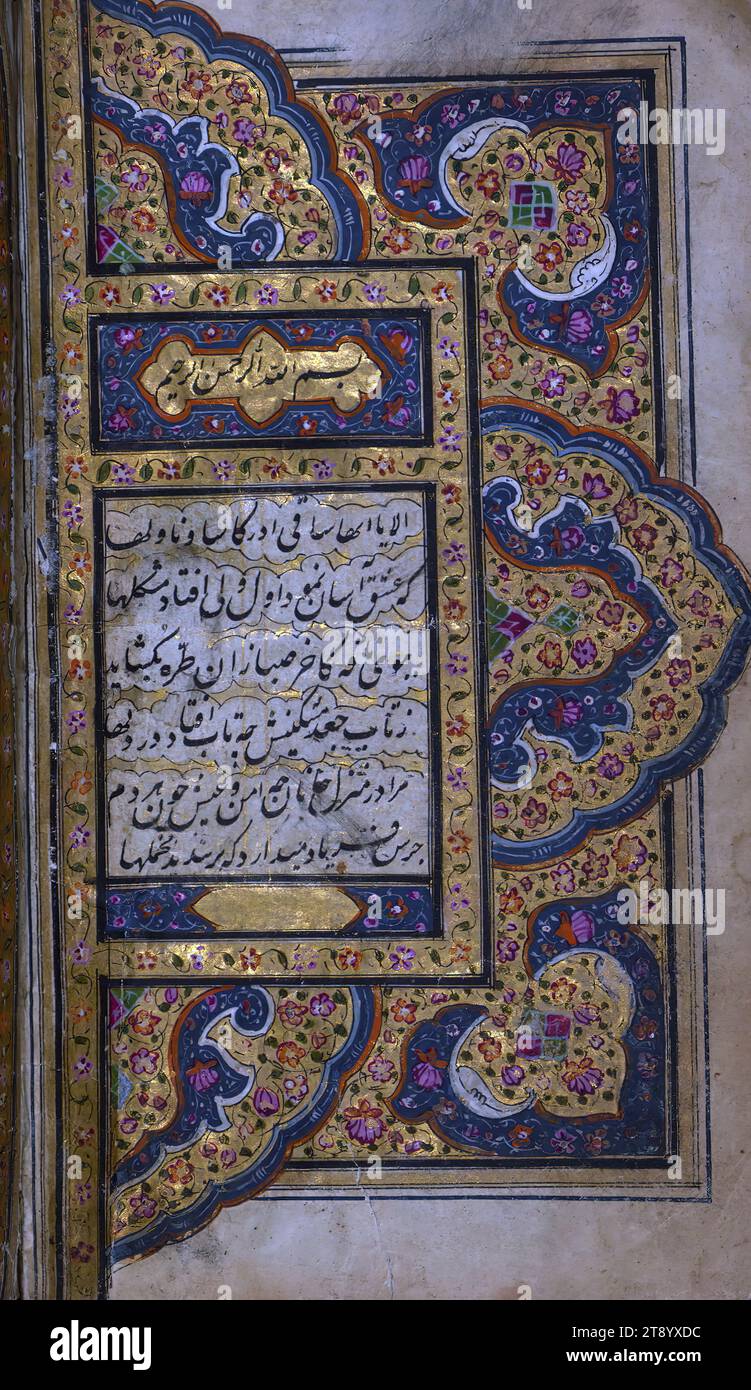 بسم الله الرحمن الرحیم
الا یا ایها الساقی ادر کاسا و ناولها
که عشق آسان نمود اول ولی افتاد مشکلها
ببوی نافه کاخر صبا زان طره بکشاید
ز تاب جعد مشکینش چه تاب افتاد در دلها
مرا در منزل جانان چه امن و عیش چون هر دم
جرس فریاد میدارد که بر بندید محملها
alamy
alamy
alamy
Image ID: 2T8YXDC
www.alamy.com